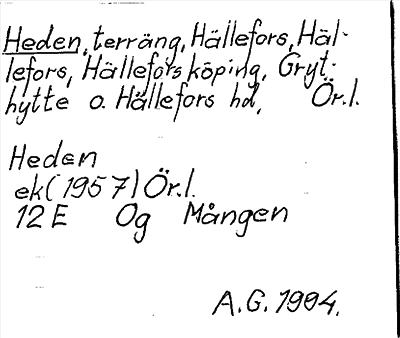 Heden, terräng, Hällefors, Häl-
lefors, Hällefors köping, Gryt-
hytte o. Hällefors hd, Ör.l.
Heden
ek (1957) Ör.l.
12 E Og Mången
A.G. 1994.